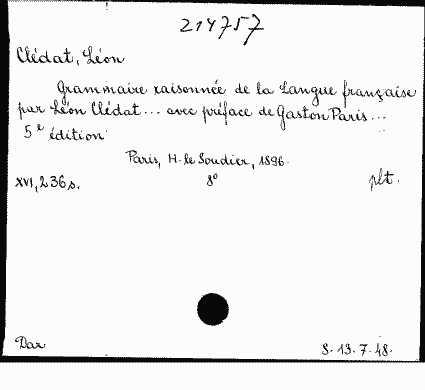 214757
Clédat, Léon
Grammaire raisonnée de la Langue française
par Léon Clédat... avec préface de Gaston Paris...
5e édition
Paris, H. le Soudier, 1896.
XVI, 236 s. 8° plt.
Dar S. 13.7.48.